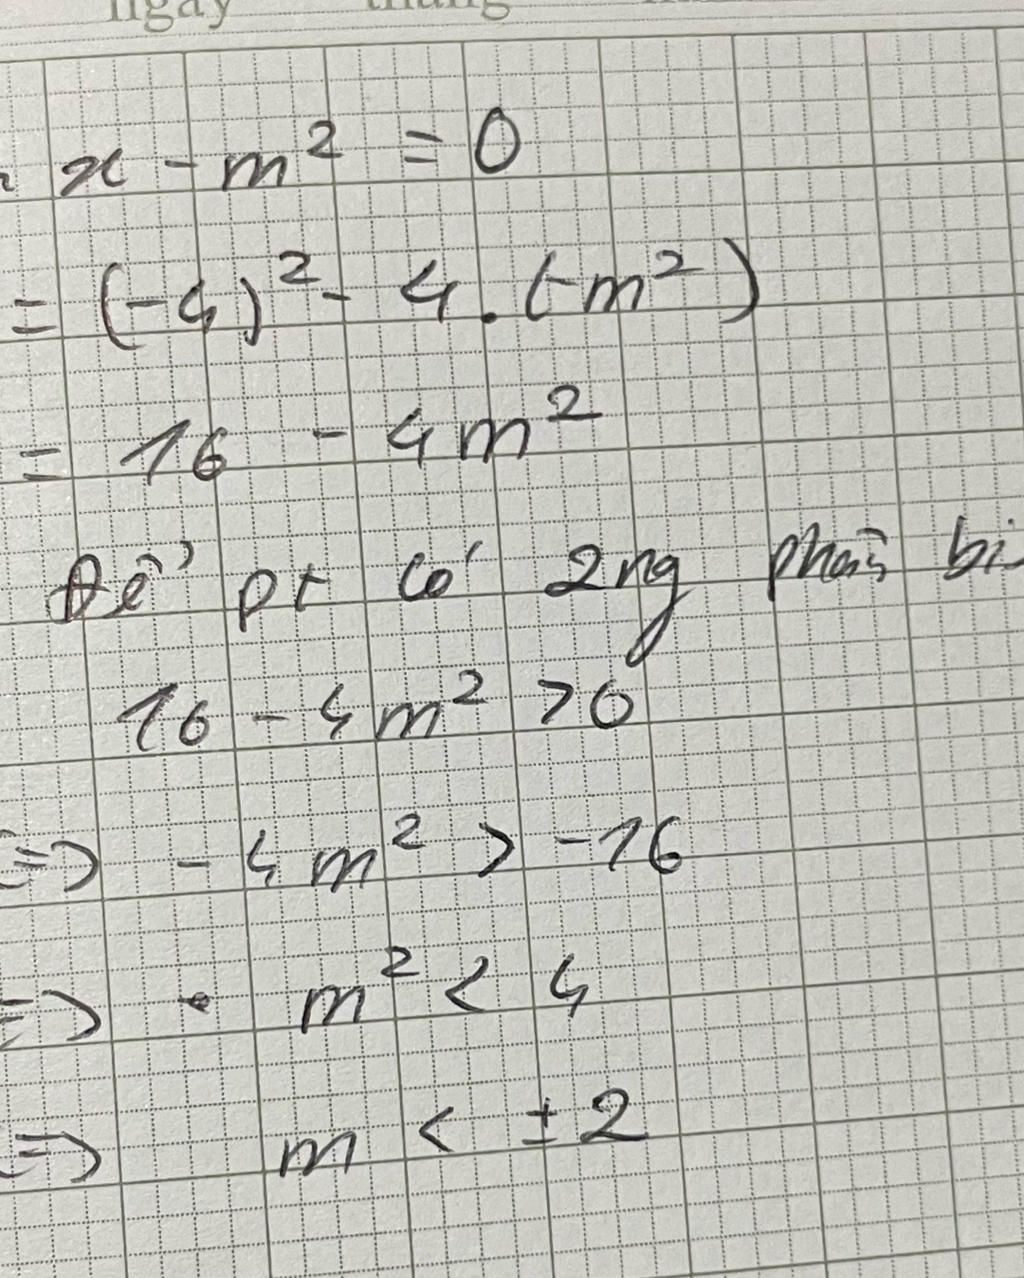 ngày tháng
x - m² = 0
= (-4)² - 4 . (-m²)
= 16 - 4m²
Để pt có 2 ng phân bi
16 - 4m² > 0
<=> - 4m² > -16
=> m² < 4
=> m < ± 2